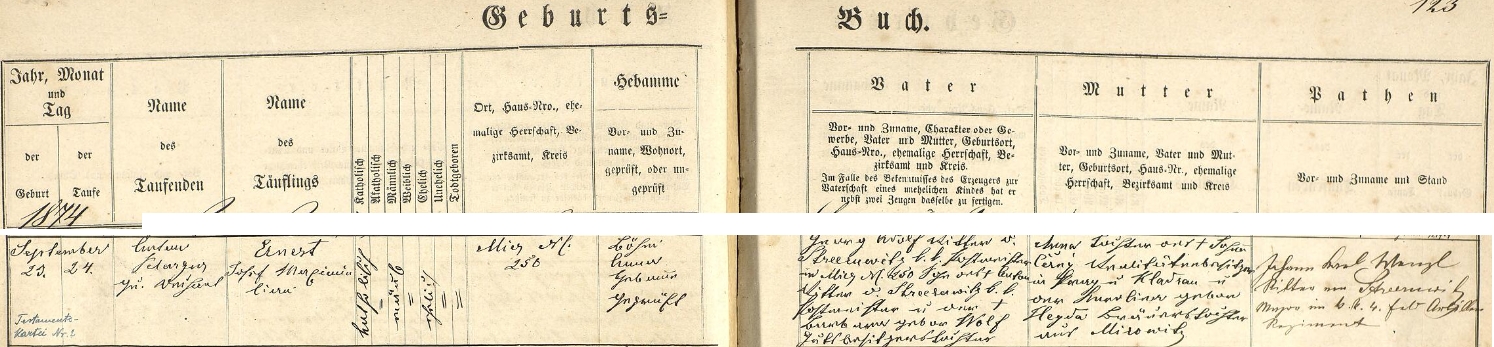 Geburts=
Buch.
123
Jahr, Monat
und
Tag
der
Geburt
der
Taufe
Name
des
Taufenden
Name
des
Täuflings
Katholisch
Akatholisch
Männlich
Weiblich
Ehelich
Unehelich
Todtgeboren
Ort, Haus-Nro., ehe-
malige Herrschaft, Be-
zirksamt, Kreis
Hebamme
Vor- und Zu-
name, Wohnort,
geprüft, oder un-
geprüft
Vater
Vor- und Zuname, Charakter oder Ge-
werbe, Vater und Mutter, Geburtsort,
Haus-Nro., ehemalige Herrschaft, Be-
zirksamt und Kreis.
Im Falle des Bekenntnisses des Erzeugers zur
Vaterschaft eines unehelichen Kindes hat er
nebst zwei Zeugen dasselbe zu fertigen.
Mutter
Vor- und Zuname, Vater und Mut-
ter, Geburtsort, Haus-Nr., ehemalige
Herrschaft, Bezirksamt und Kreis
Pathen
Vor- und Zuname und Stand
1874
September
23. 24.
Testaments-
Kartei Nr. 2
Anton
Ernest
Josef Maximi-
lian
katholisch
männlich
ehelich
Mies N.
250
Anna
geprüft
Georg Adolf Ritter v.
Streeruwitz k. k. Postmeister
in Mies N. 250 Sohn des Anton
Ritter v. Streeruwitz k. k.
Postmeister u der
Barbara gebor Wolf
Anna Tochter des
Realitätenbesitzer
in Prag u Kladrau u
der Karoline gebor
Heyda Bräuerstochter
aus Mirowitz
Johann Karl Wenzl
Ritter von Streeruwitz
Major im k. k. 4. Feld Artillerie
Regiment